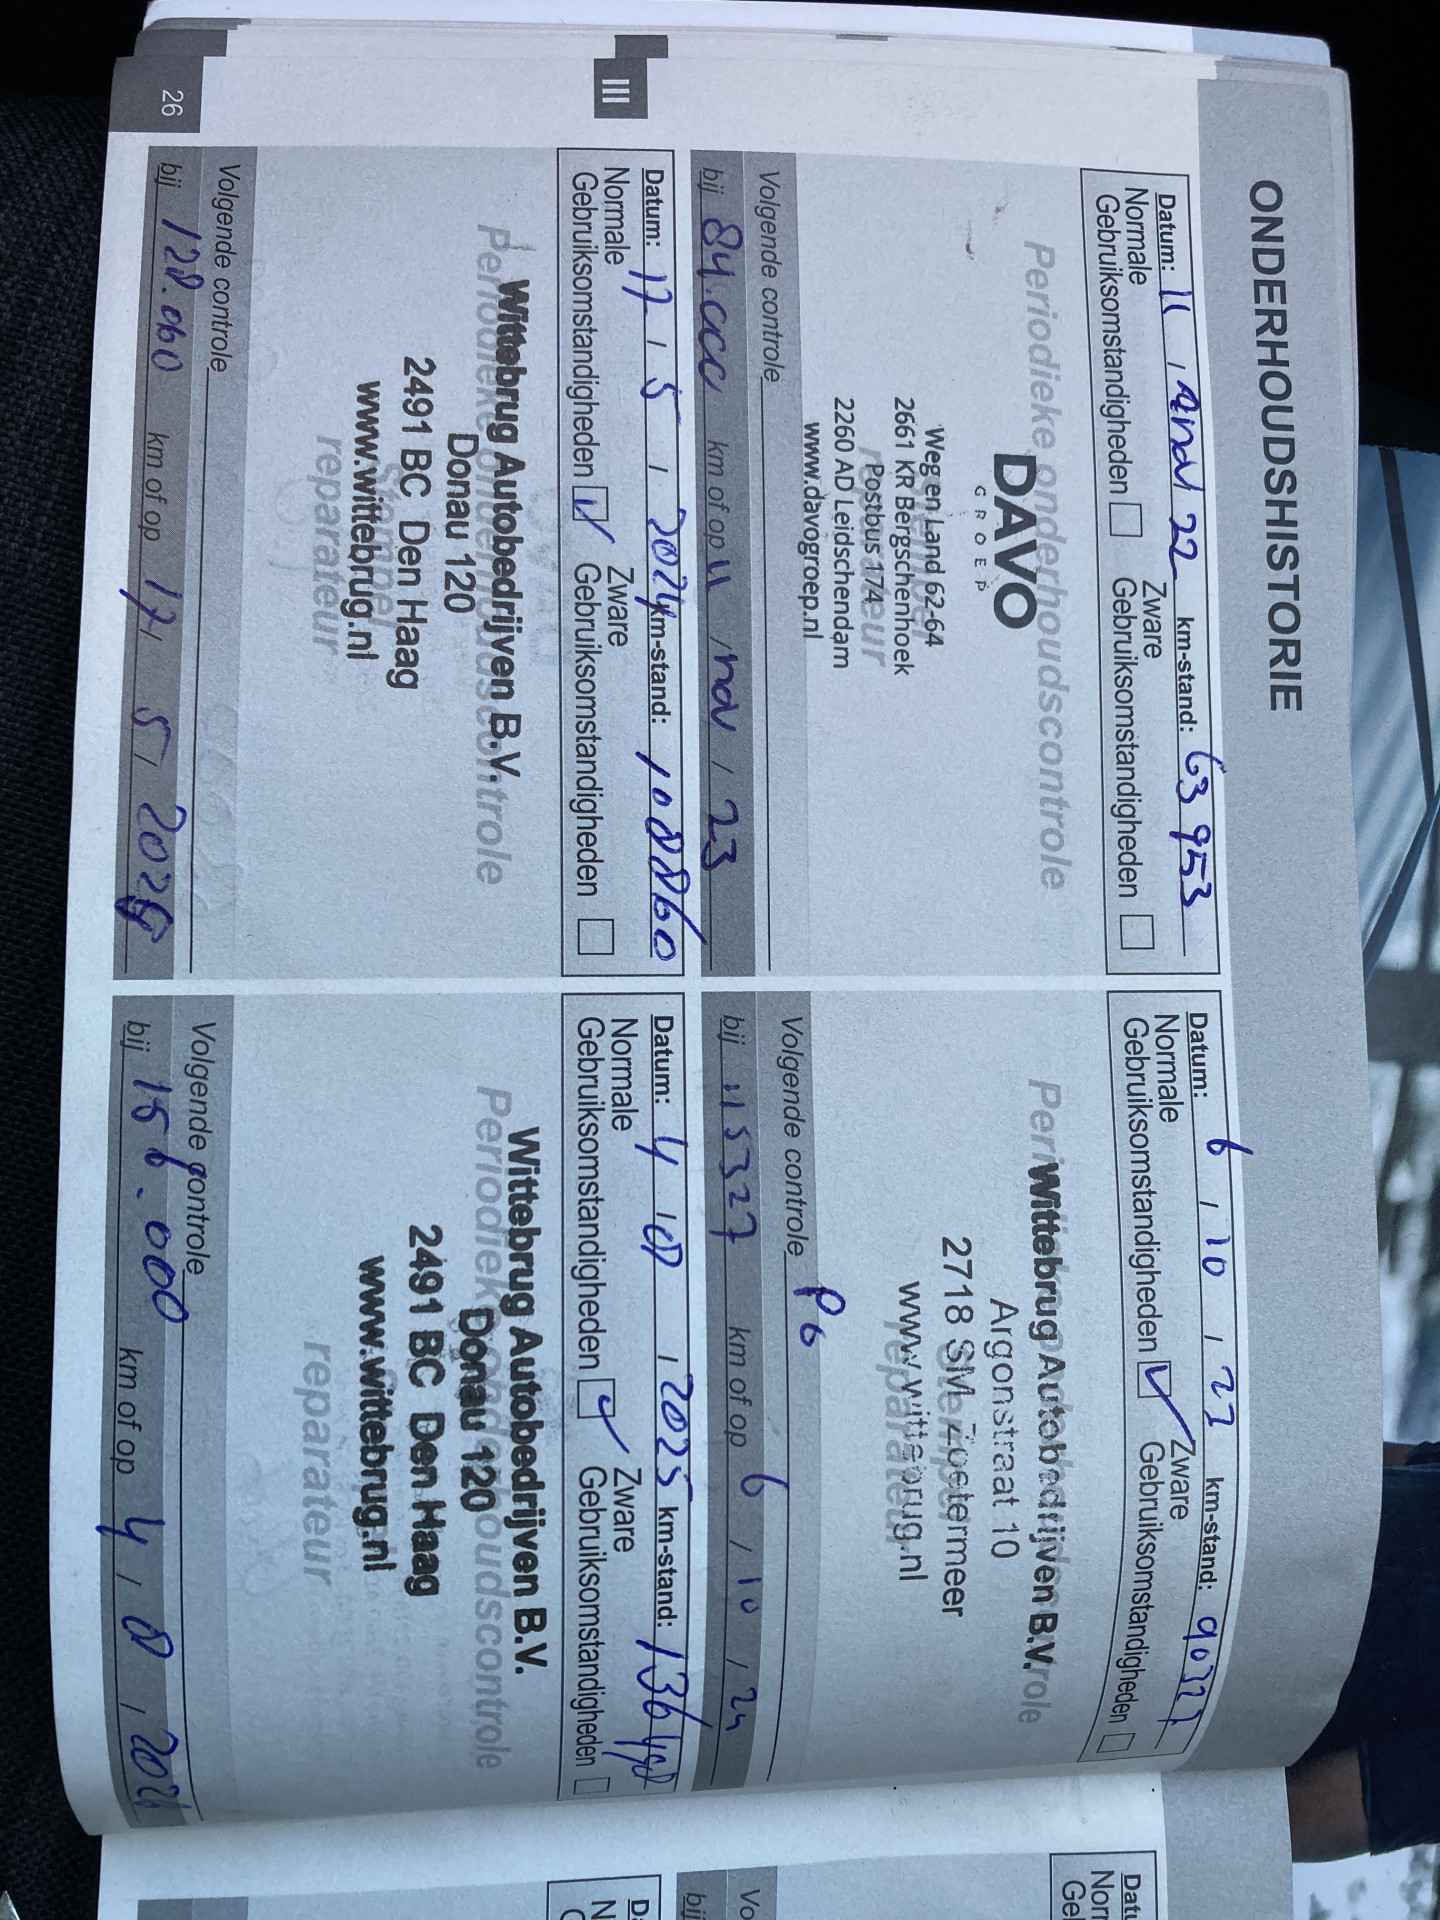 ONDERHOUDSHISTORIE
Datum: 11 / nov 22 km-stand: 63 953
Normale Zware
Gebruiksomstandigheden Gebruiksomstandigheden
Periodieke onderhoudscontrole
DAVO
GROEP
Weg en Land 62-64
2661 KR Bergschenhoek
Postbus 174
2260 AD Leidschendam
www.davogroep.nl
Volgende controle
bij 84.000 km of op 11 / nov / 23
Datum: 6 / 10 / 23 km-stand:
Normale Zware
Gebruiksomstandigheden Gebruiksomstandigheden
Wittebrug Autobedrijven B.V.
Argonstraat 10
2718 SM Zoetermeer
www.wittebrug.nl
reparateur
Volgende controle
bij 115327 km of op 6 / 10 / 24
III
Datum: 17 / 5 / 2024 km-stand: 108860
Normale Zware
Gebruiksomstandigheden Gebruiksomstandigheden
Periodieke onderhoudscontrole
Wittebrug Autobedrijven B.V.
Donau 120
2491 BC Den Haag
www.wittebrug.nl
Stempel
reparateur
Volgende controle
bij km of op 17 / 5 /
Datum: 4 / 8 / 2025 km-stand: 136498
Normale Zware
Gebruiksomstandigheden Gebruiksomstandigheden
Periodieke onderhoudscontrole
Wittebrug Autobedrijven B.V.
Donau 120
2491 BC Den Haag
www.wittebrug.nl
reparateur
Volgende controle
bij 156.000 km of op 4 / 8 / 2026
26